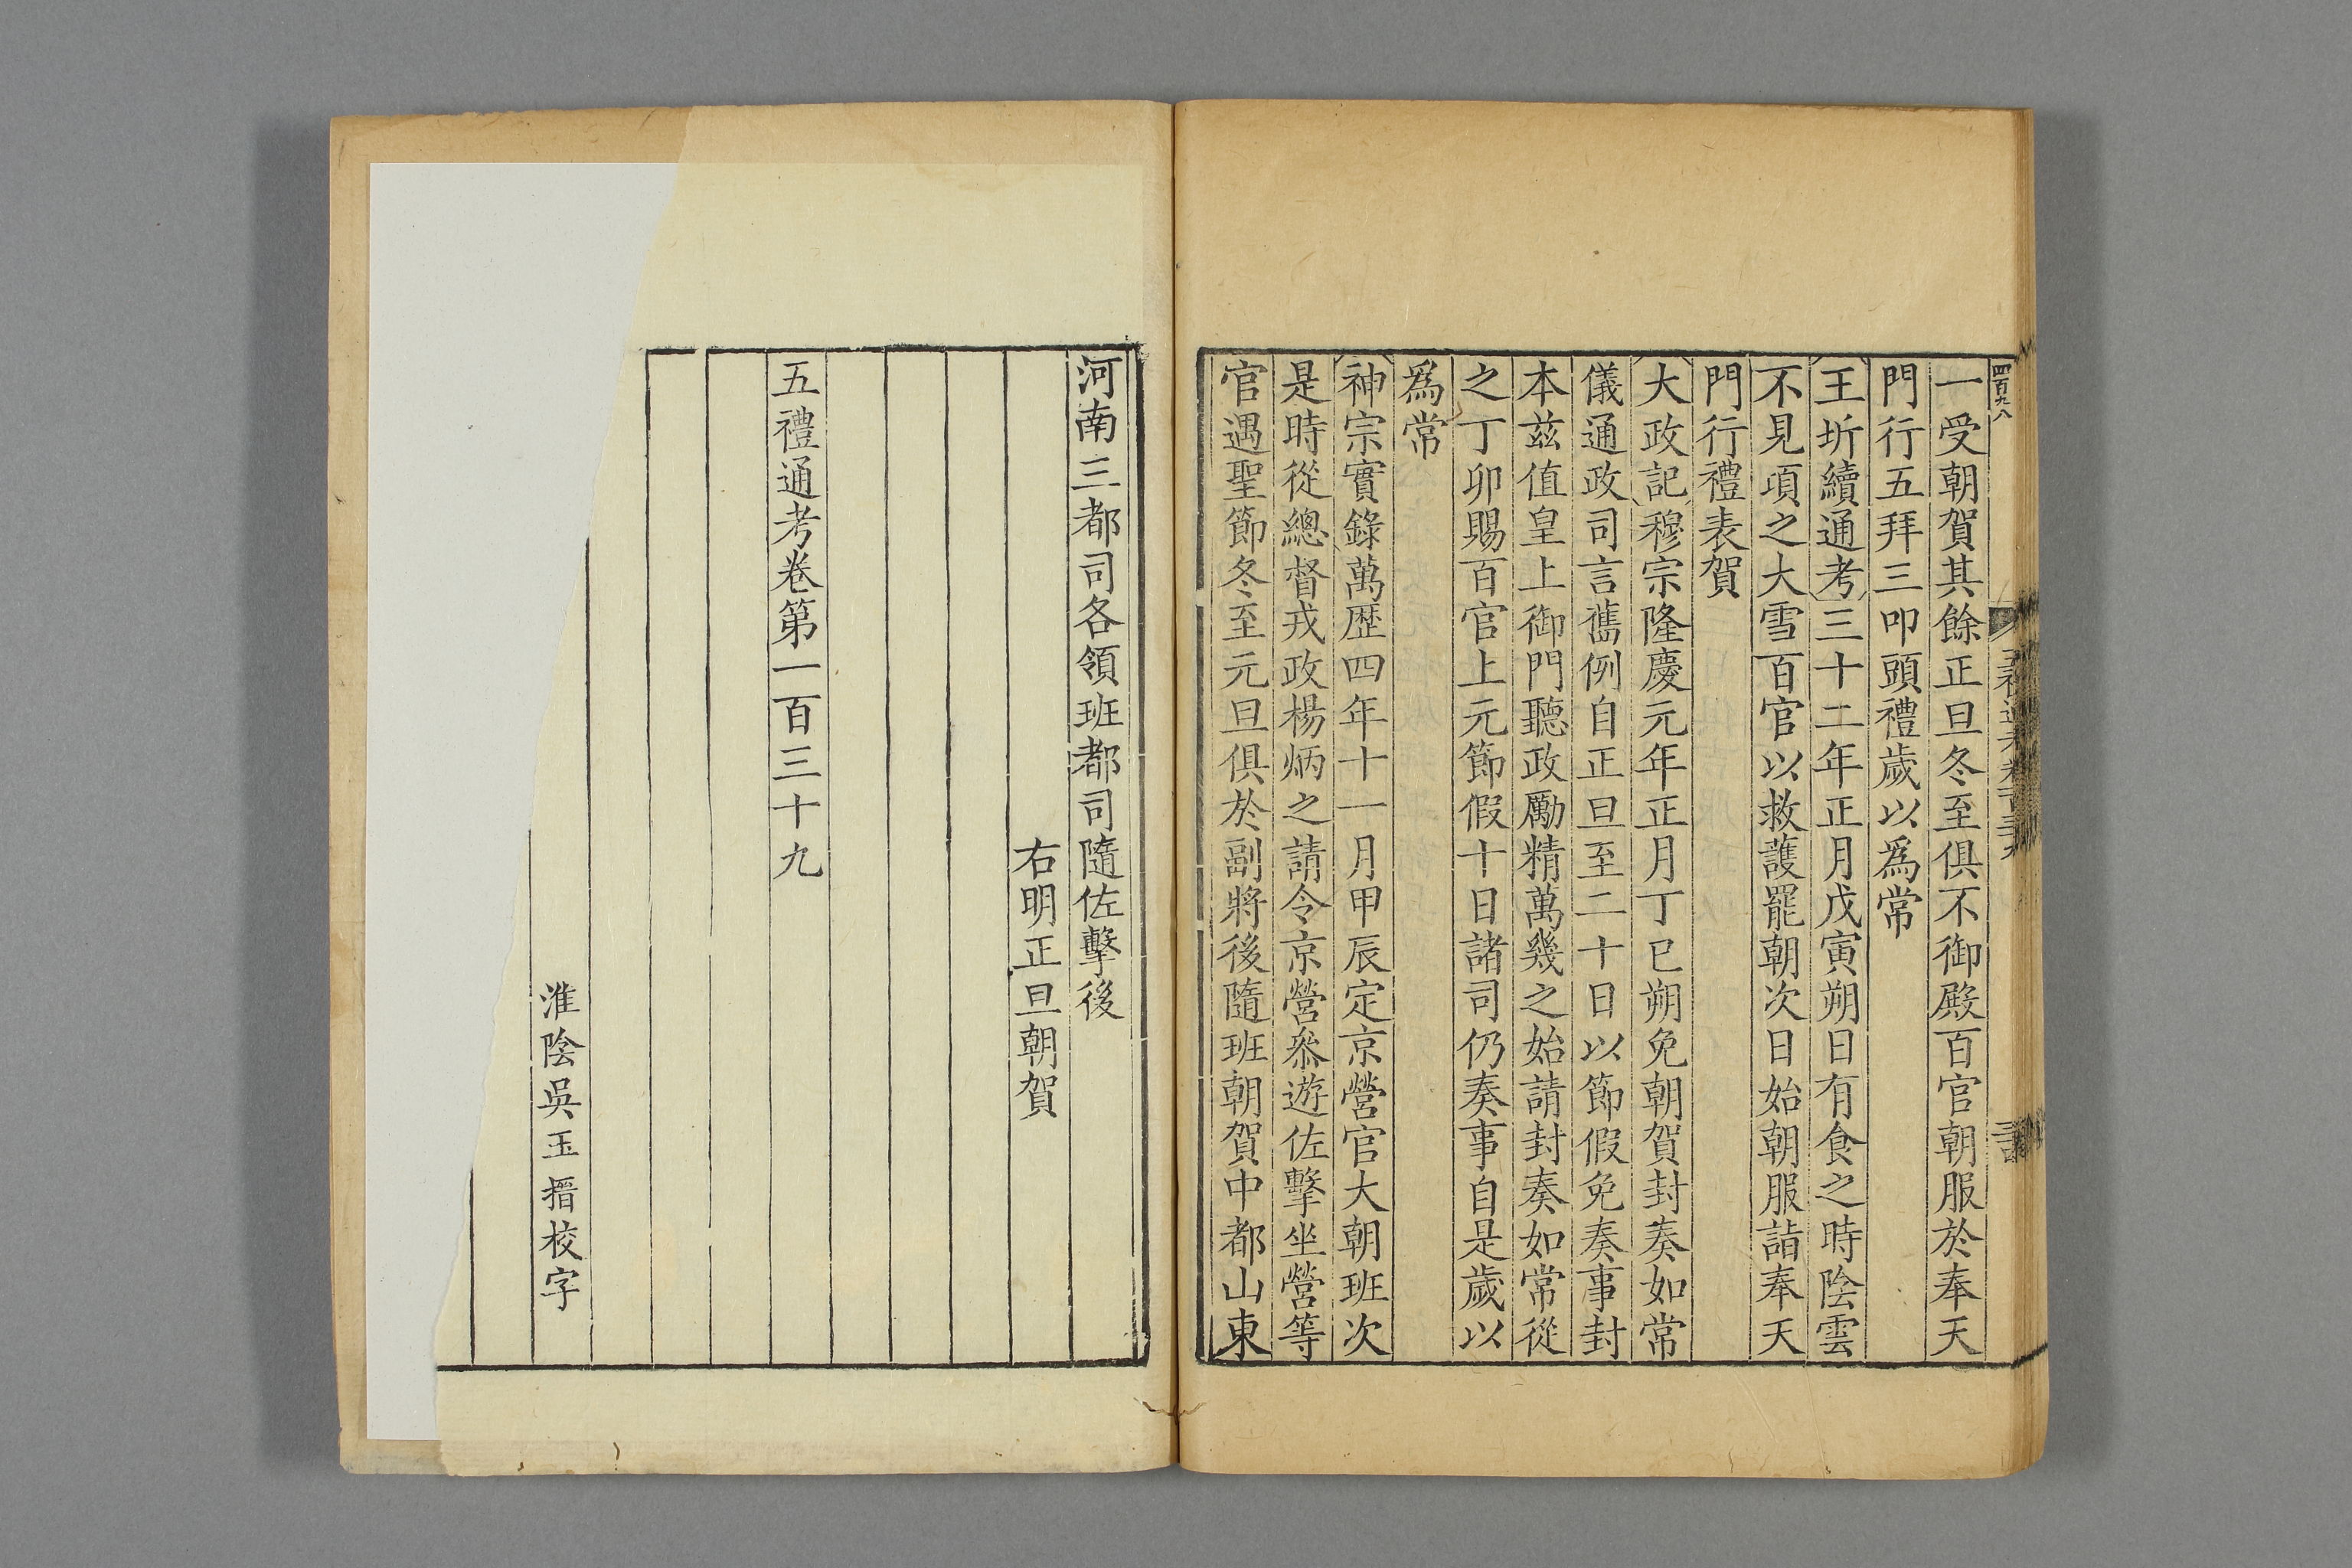 四百九八
五禮通考卷一百三十九
一受朝賀其餘正旦冬至俱不御殿百官朝服於奉天
門行五拜三叩頭禮歲以爲常
王圻續通考三十二年正月戊寅朔日有食之時陰雲
不見頃之大雪百官以救護罷朝次日始朝服詣奉天
門行禮表賀
大政記穆宗隆慶元年正月丁巳朔免朝賀封奏如常
儀通政司言舊例自正旦至二十日以節假免奏事封
本兹值皇上御門聽政勵精萬幾之始請封奏如常從
之丁卯賜百官上元節假十日諸司仍奏事自是歲以
爲常
神宗實錄萬歴四年十一月甲辰定京營官大朝班次
是時從總督戎政楊炳之請令京營叅遊佐擊坐營等
官遇聖節冬至元旦俱於副將後隨班朝賀中都山東
河南三都司各領班都司隨佐擊後
右明正旦朝賀
五禮通考卷第一百三十九
淮陰吳玉搢校字